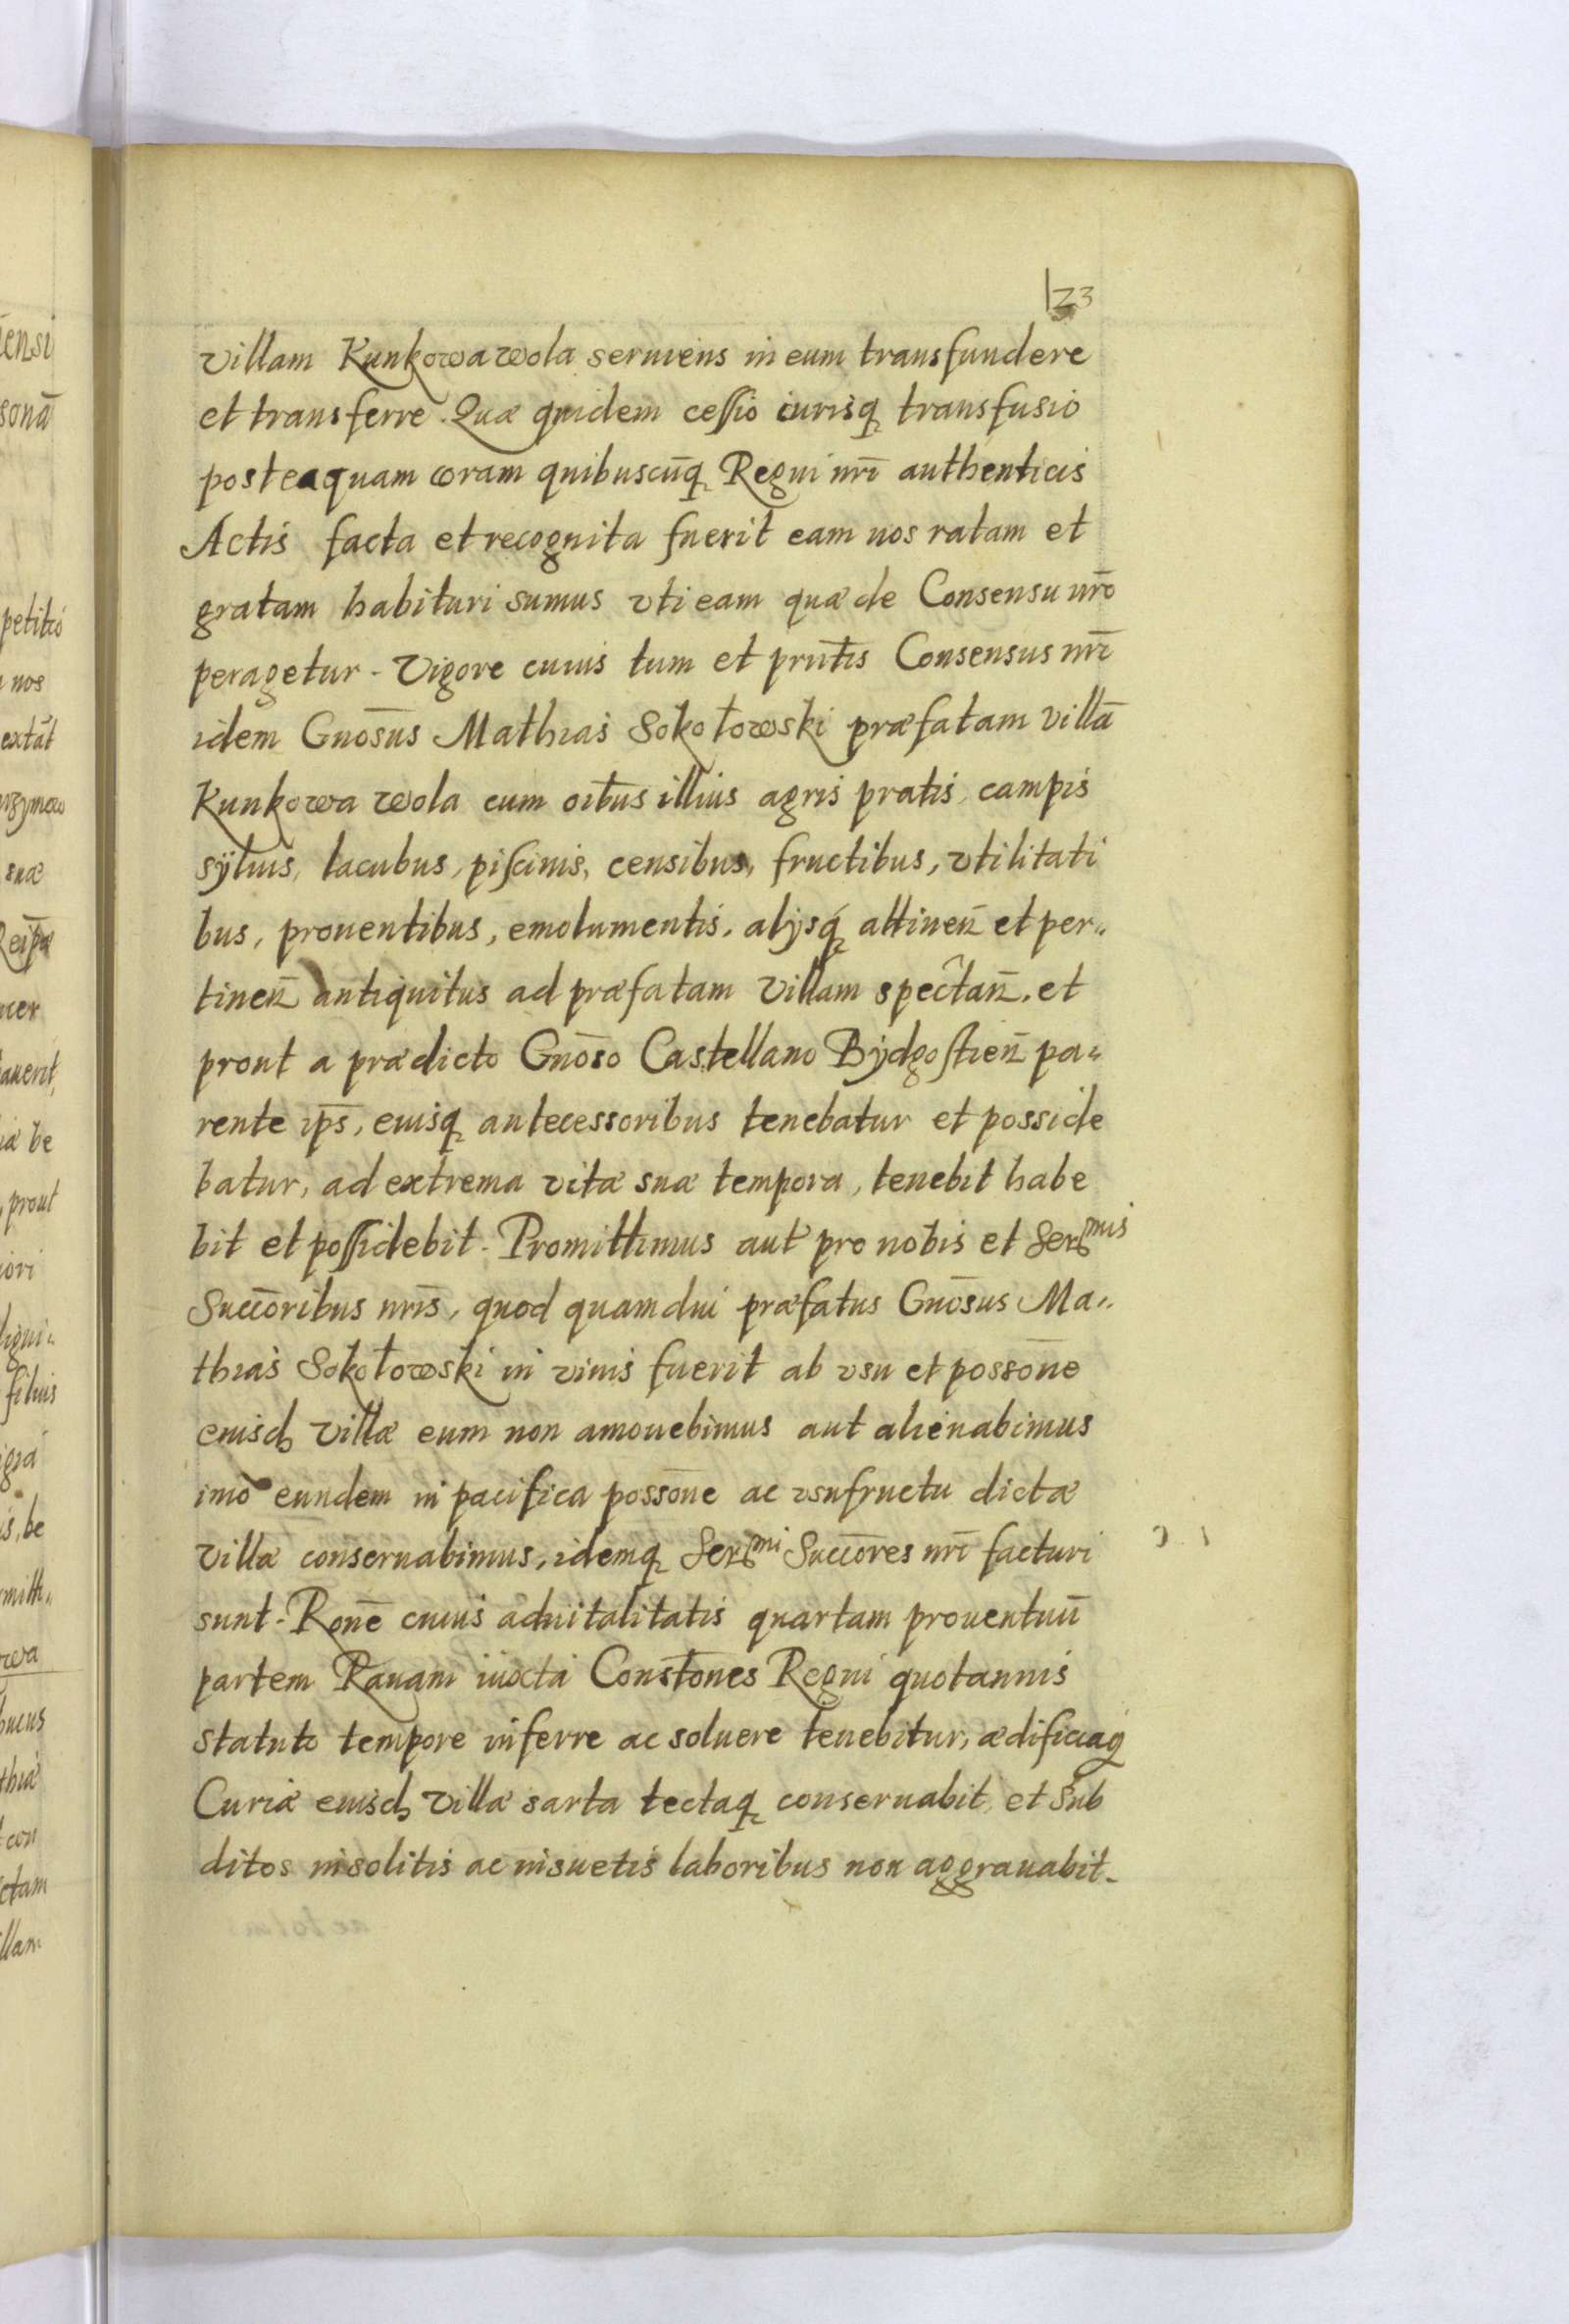 123
villam Kunkowa wola seruiens in eum transfundere
et transferre. Quæ quidem cessio iurisq; transfusio
posteaquam coram quibuscūq; Regni nrī authenticis
Actis facta et recognita fuerit eam nos ratam et
gratam habituri sumus vti eam quæ de Consensu nrō
peragetur. Vigore cuius tum et prntīs Consensus nrī
idem Gnōsus Mathias Sokołowski præfatam villā
Kunkowa wola cum oībus illius agris pratis, campis
sÿluis, lacubus, piscinis, censibus, fructibus, vtilitati
bus, prouentibus, emolumentis, alijsq; attineñ et per„
tineñ antiquitus ad præfatam villam spectañ. et
prout a prædicto Gnōso Castellano Bÿdgostieñ pa„
rente ips̄, eiusq; antecessoribus tenebatur et posside
batur, ad extrema vitæ suæ tempora, tenebit habe
bit et possidebit. Promittimus aut̄ pro nobis et Serᵐⁱˢ
Succōribus nrīs, quod quamdiu præfatus Gnōsus Ma„
thias Sokołowski in viuis fuerit ab vsu et possōne
eiusd; villæ eum non amouebimus aut alienabimus
imō eundem in pacifica possōne ac vsufructu dictæ
villæ conseruabimus, idemq; Serᵐⁱ Succōres nrī facturi
sunt. Ronē cuius aduitalitatis quartam prouentuū
partem Rauam iuxta Constōnes Regni quotannis
statuto tempore inferre ac soluere tenebitur, ædificiaq;
Curiæ eiusd; villæ sarta tectaq; conseruabit, et Sub
ditos insolitis ac insuetis laboribus non aggrauabit.